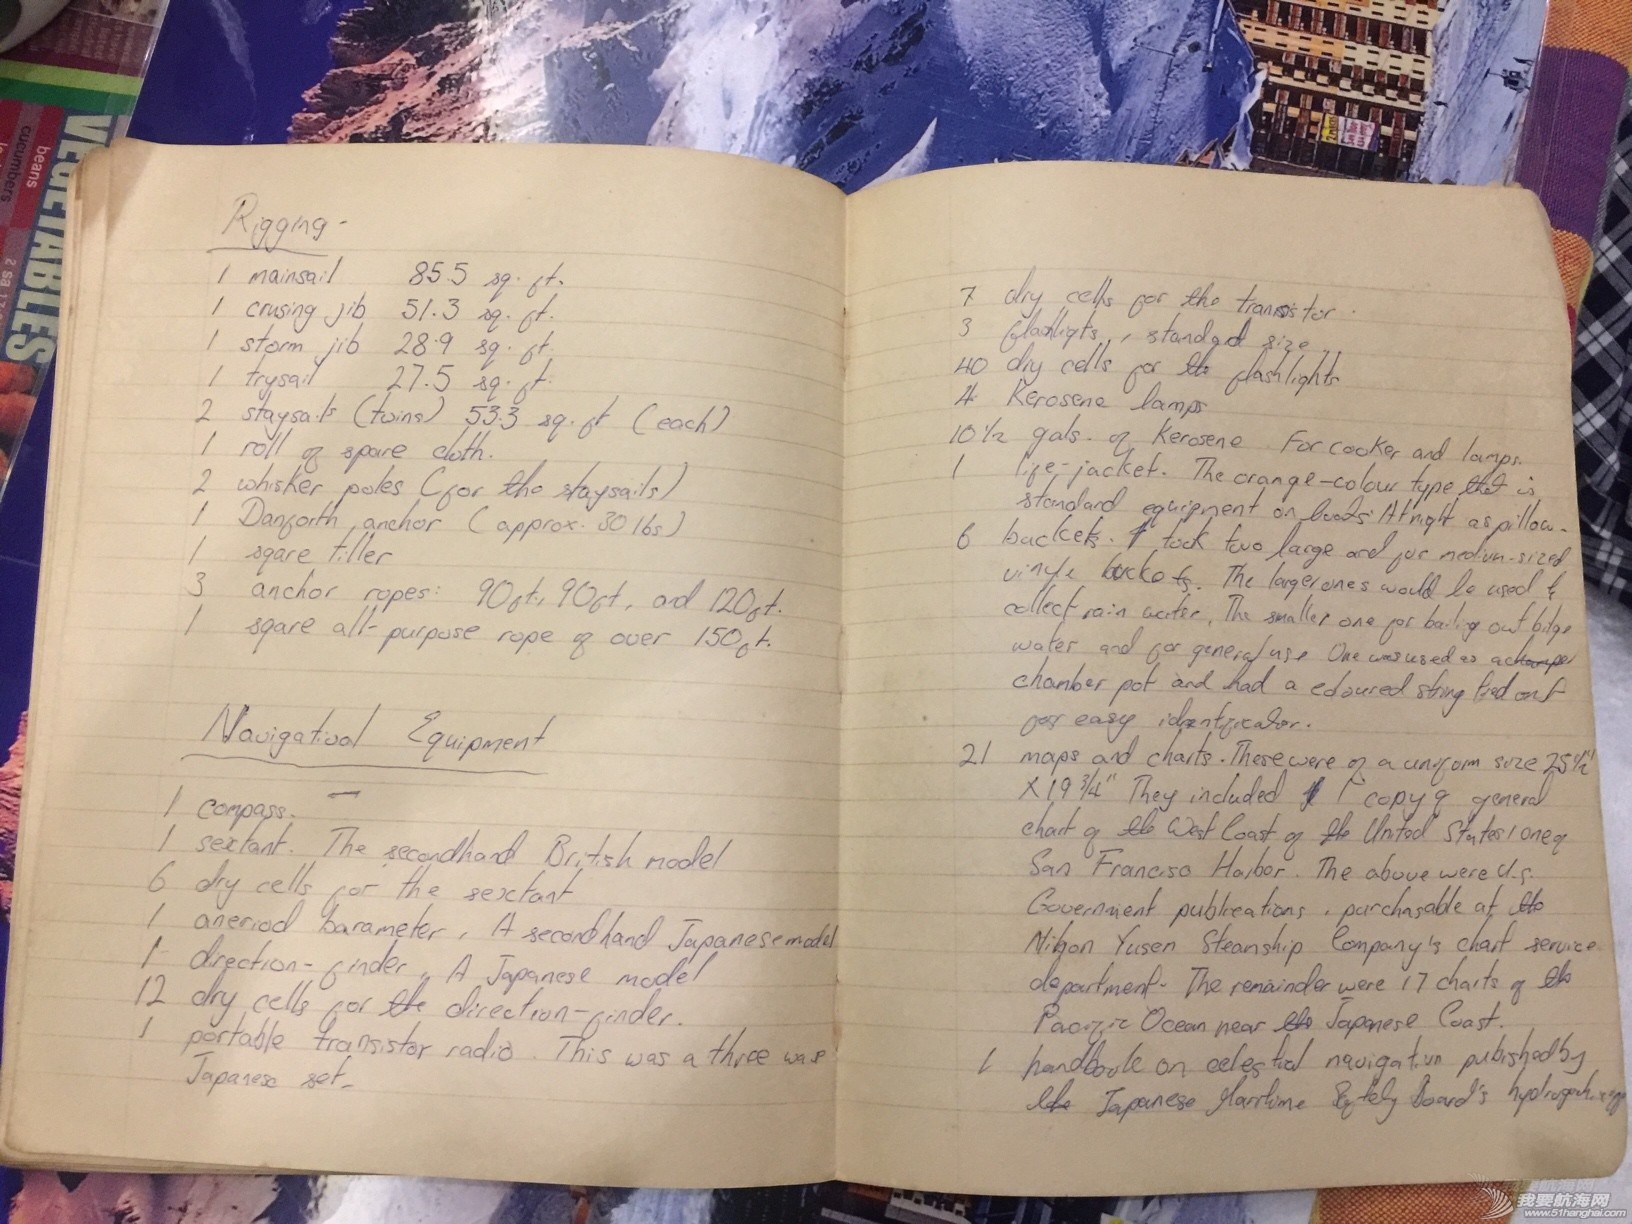 VEGETABLES
beans
cucumbers
Rigging -
1 mainsail 85.5 sq. ft.
1 crusing jib 51.3 sq. ft.
1 storm jib 28.9 sq. ft.
1 trysail 27.5 sq. ft.
2 staysails (twins) 53.3 sq. ft (each)
1 roll of spare cloth.
2 whisker poles (for the staysails)
1 Danforth anchor (approx. 30 lbs)
1 spare tiller
3 anchor ropes: 90ft, 90ft, and 120ft.
1 spare all-purpose rope of over 150ft.
Navigational Equipment
1 compass. —
1 sextant. The secondhand British model
6 dry cells for the sextant
1 aneriod barameter, A secondhand Japanese model
1 direction-finder, A Japanese model
12 dry cells for the direction-finder.
1 portable transistor radio. This was a three way
Japanese set.
7 dry cells for the transistor.
3 flashligts, standard size
40 dry cells for the flashlights
4 Kerosene lamps
10 1/2 gals. of Kerosene. For cooker and lamps.
1 life-jacket. The orange-colour type that is
standard equipment on boats. At night as pillow.
6 buckets. I took two large and for medium-sized
vinyl buckets. The larger ones would be used to
collect rain water, The smaller one for bailing out bilge
water and for general use. One was used as a
chamber pot and had a coloured string tied on it
for easy identification.
21 maps and charts. These were of a uniform size 25 1/2"
X 19 3/4" They included 1 copy of general
chart of the West Coast of the United States, one of
San Francisco Harbor. The above were U.S.
Government publications, purchasable at the
Nippon Yusen Steamship Company's chart service
department. The remainder were 17 charts of the
Pacific Ocean near the Japanese Coast.
1 handbook on celestial navigation published by
the Japanese Maritime Safety Board's
我要航海网
www.51hanghai.com